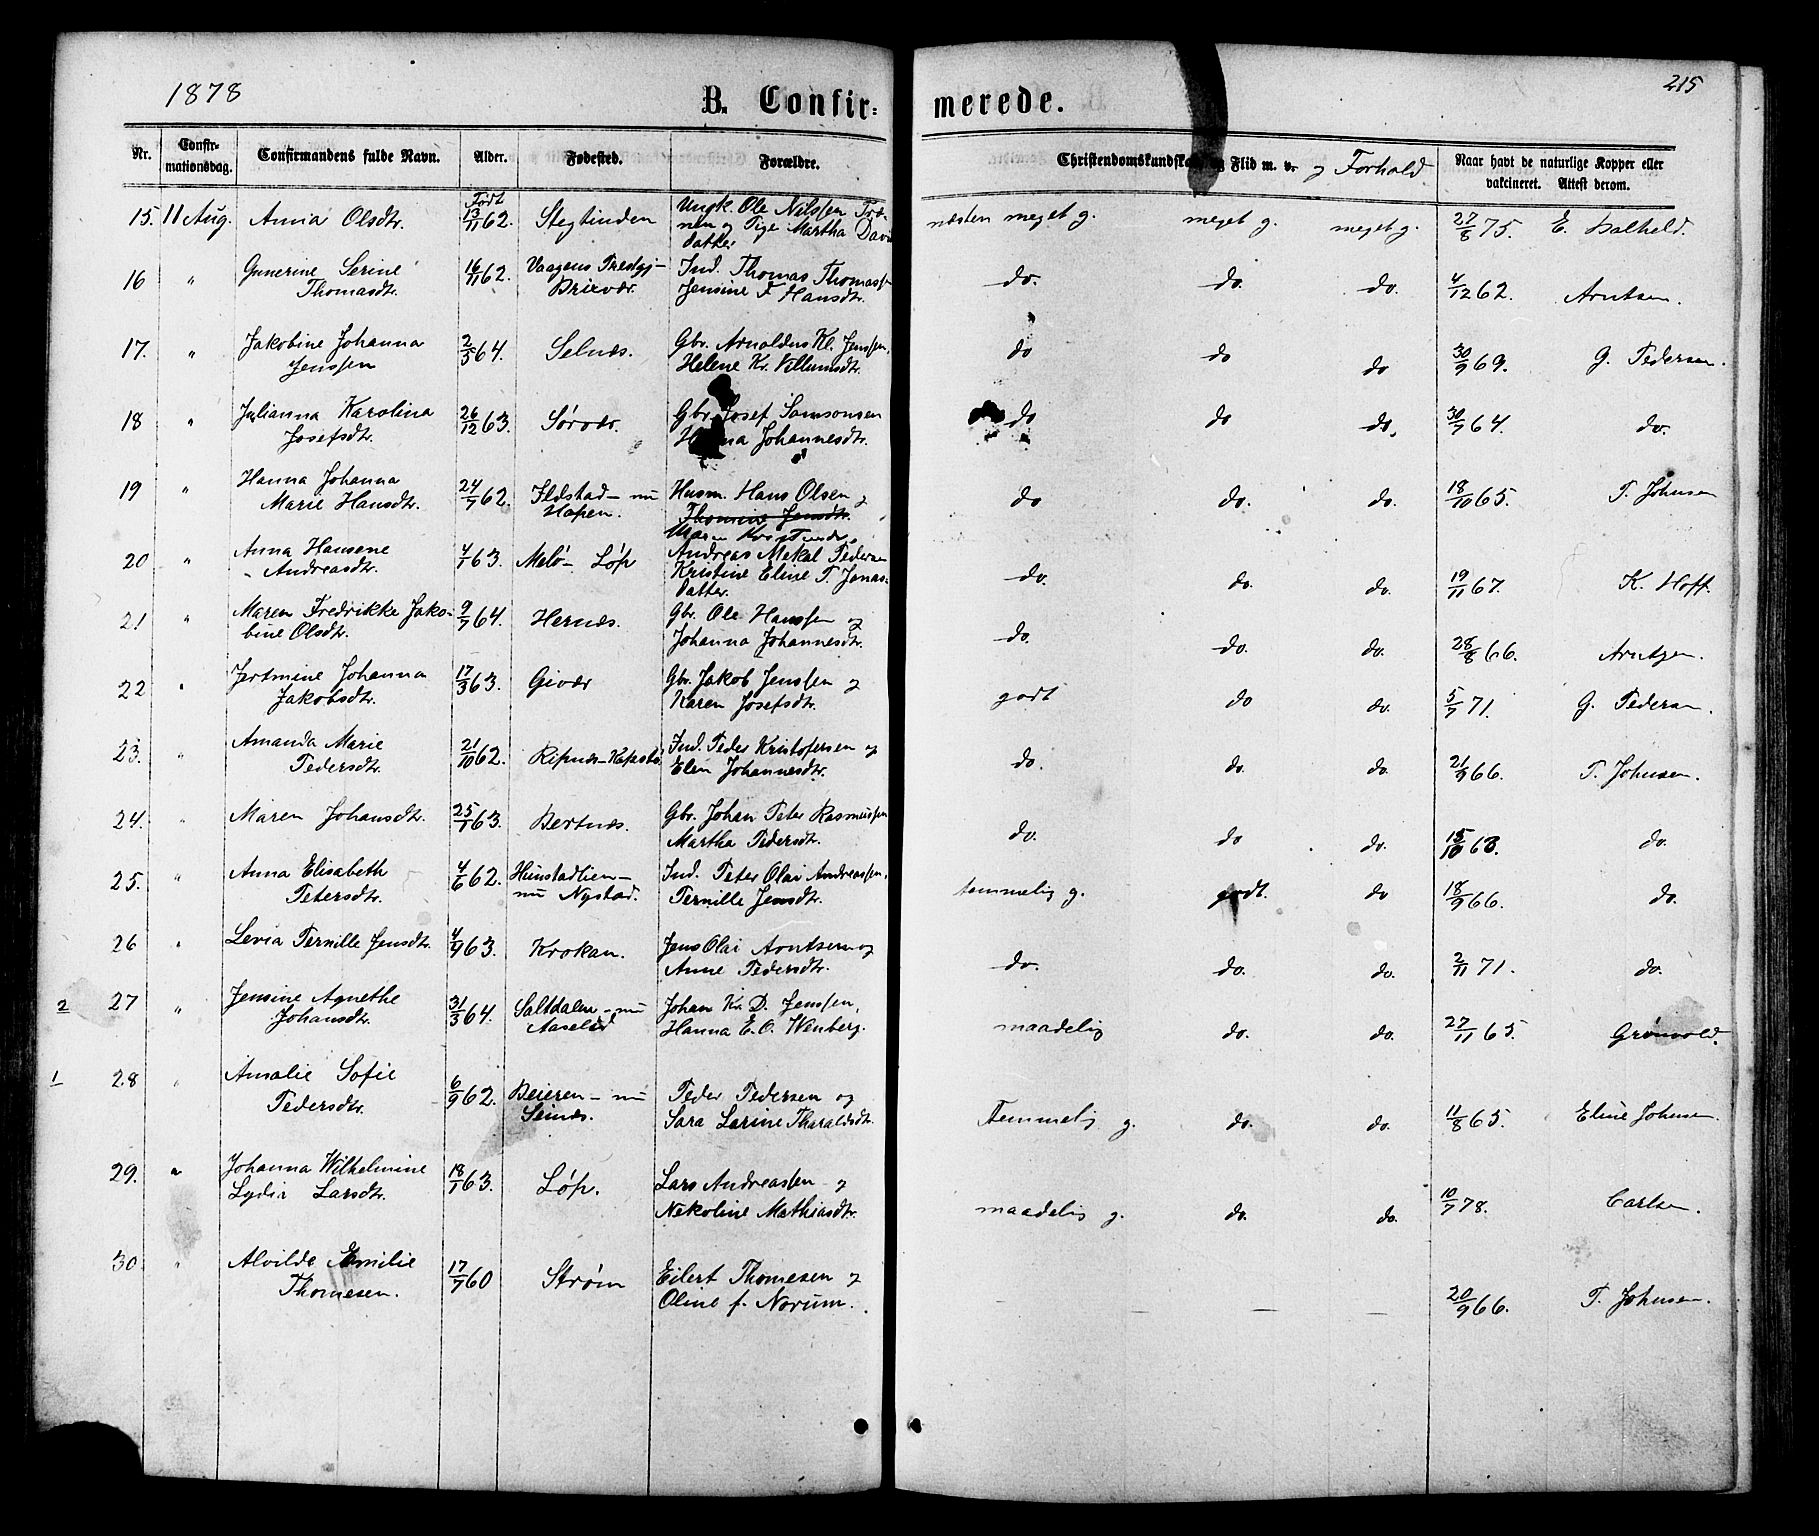 1878
215
B. Confirmerede.
Nr. Confirmationsdag. Confirmandens fulde Navn. Alder. Fødested. Forældre. Christendomskundskab og Flid m. v. og Forhold Naar havt de naturlige Kopper eller vakcineret. Attest derom.
Født
15. 11 Aug. Anna Olsdtr. 13/11 62. Stegtinden Ungk. Ole Nilssen Træ-
nen og Pige Martha Davids
datter
næsten meget g. meget g. meget g. 27/8 75. E. Dalheld.
16 " Gunerine Serine
Thomasdtr. 16/11 62. Vaagens Prestgj-
Brievær. Ind. Thomas Thomass
Jensine F Hansdtr.
do. do. do. 4/12 62. Arntsen.
17. " Jakobine Johanna
Jenssen 2/5 64. Selnæs. Gbr. Arnoldus Kl. Jenssen,
Helene Kr. Villumsdtr.
do do do 30/9 69. G. Pedersen.
18 " Julianna Karolina
Josefsdtr. 26/12 63. Sørvær. Gbr. Josef Samsonsen
Johannesdtr.
do do do. 30/7 64. do.
19 " Hanna Johanna
Marie Hansdtr. 24/7 62. Ildstad - nu
Hopen. Husm. Hans Olsen og
Thomine Jensdtr.
Maren
do do. do. 18/10 65. P. Johnsen
20 " Anna Hansene
Andreasdtr. 4/1 63. Melø- Løp Andreas Mekal Pedersen
Kristine Eline P. Jonas-
datter.
do. do. do. 19/11 67. K. Hoff.
21 " Maren Fredrikke Jako-
bine Olsdtr. 9/7 64. Hernæs. Gbr. Ole Hanssen og
Johanna Johannesdtr.
do. do. do. 28/8 66. Arntzen.
22 " Jertmine Johanna
Jakobsdtr. 17/3 63. Givær Gbr. Jakob Jenssen og
Karen Josefsdtr.
godt do do. 5/7 71. G. Pedersen.
23. " Amanda Marie
Pedersdtr. 21/10 62. Ripnæs- Ind. Peder Kristofersen og
Elen Johannesdtr.
do. do. do. 21/9 66. P. Johnsen.
24. " Maren Johansdtr. 25/7 63. Bertnæs. Gbr. Johan Peter Rasmussen
Martha Pedersdtr.
do. do do. 15/10 63. do.
25. " Anna Elisabeth
Petersdtr. 4/6 62. Hunstadlien-
nu Nystad. Ind. Peter Olai Andreassen,
Pernille Jensdtr.
temmelig g. godt. do 18/9 66. do.
26 " Levia Pernille Jensdtr. 4/9 63. Krokan. Jens Olai Arntsen og
Anne Pedersdtr.
do. do. do. 2/11 71. do.
2 27 " Jensine Agnethe
Johansdtr. 31/3 64. Saltdalen - nu
Johan Kr. D. Jenssen,
Hanna E. O. Wenberg.
maadelig do. do. 27/11 65. Grønvold.
1 28 " Amalie Sofie
Pedersdtr. 6/9 62. Beieren - nu
Seinæs. Peder Pedersen og
Sara Larine Tharaldsdtr.
temmelig g. do. do. 11/8 65. Eline Johnsen.
29. " Johanna Wilhelmine
Lydia Larsdtr. 18/1 63. Løp. Lars Andreassen og
Nekoline Mathiasdtr.
maadelig g. do. do. 10/7 78. Carlsen.
30 " Alvilde Emilie
Thomesen. 17/7 60 Strøm Eilert Thomesen og
Oline f. Norum.
— — — 20/9 66. P. Johnsen.